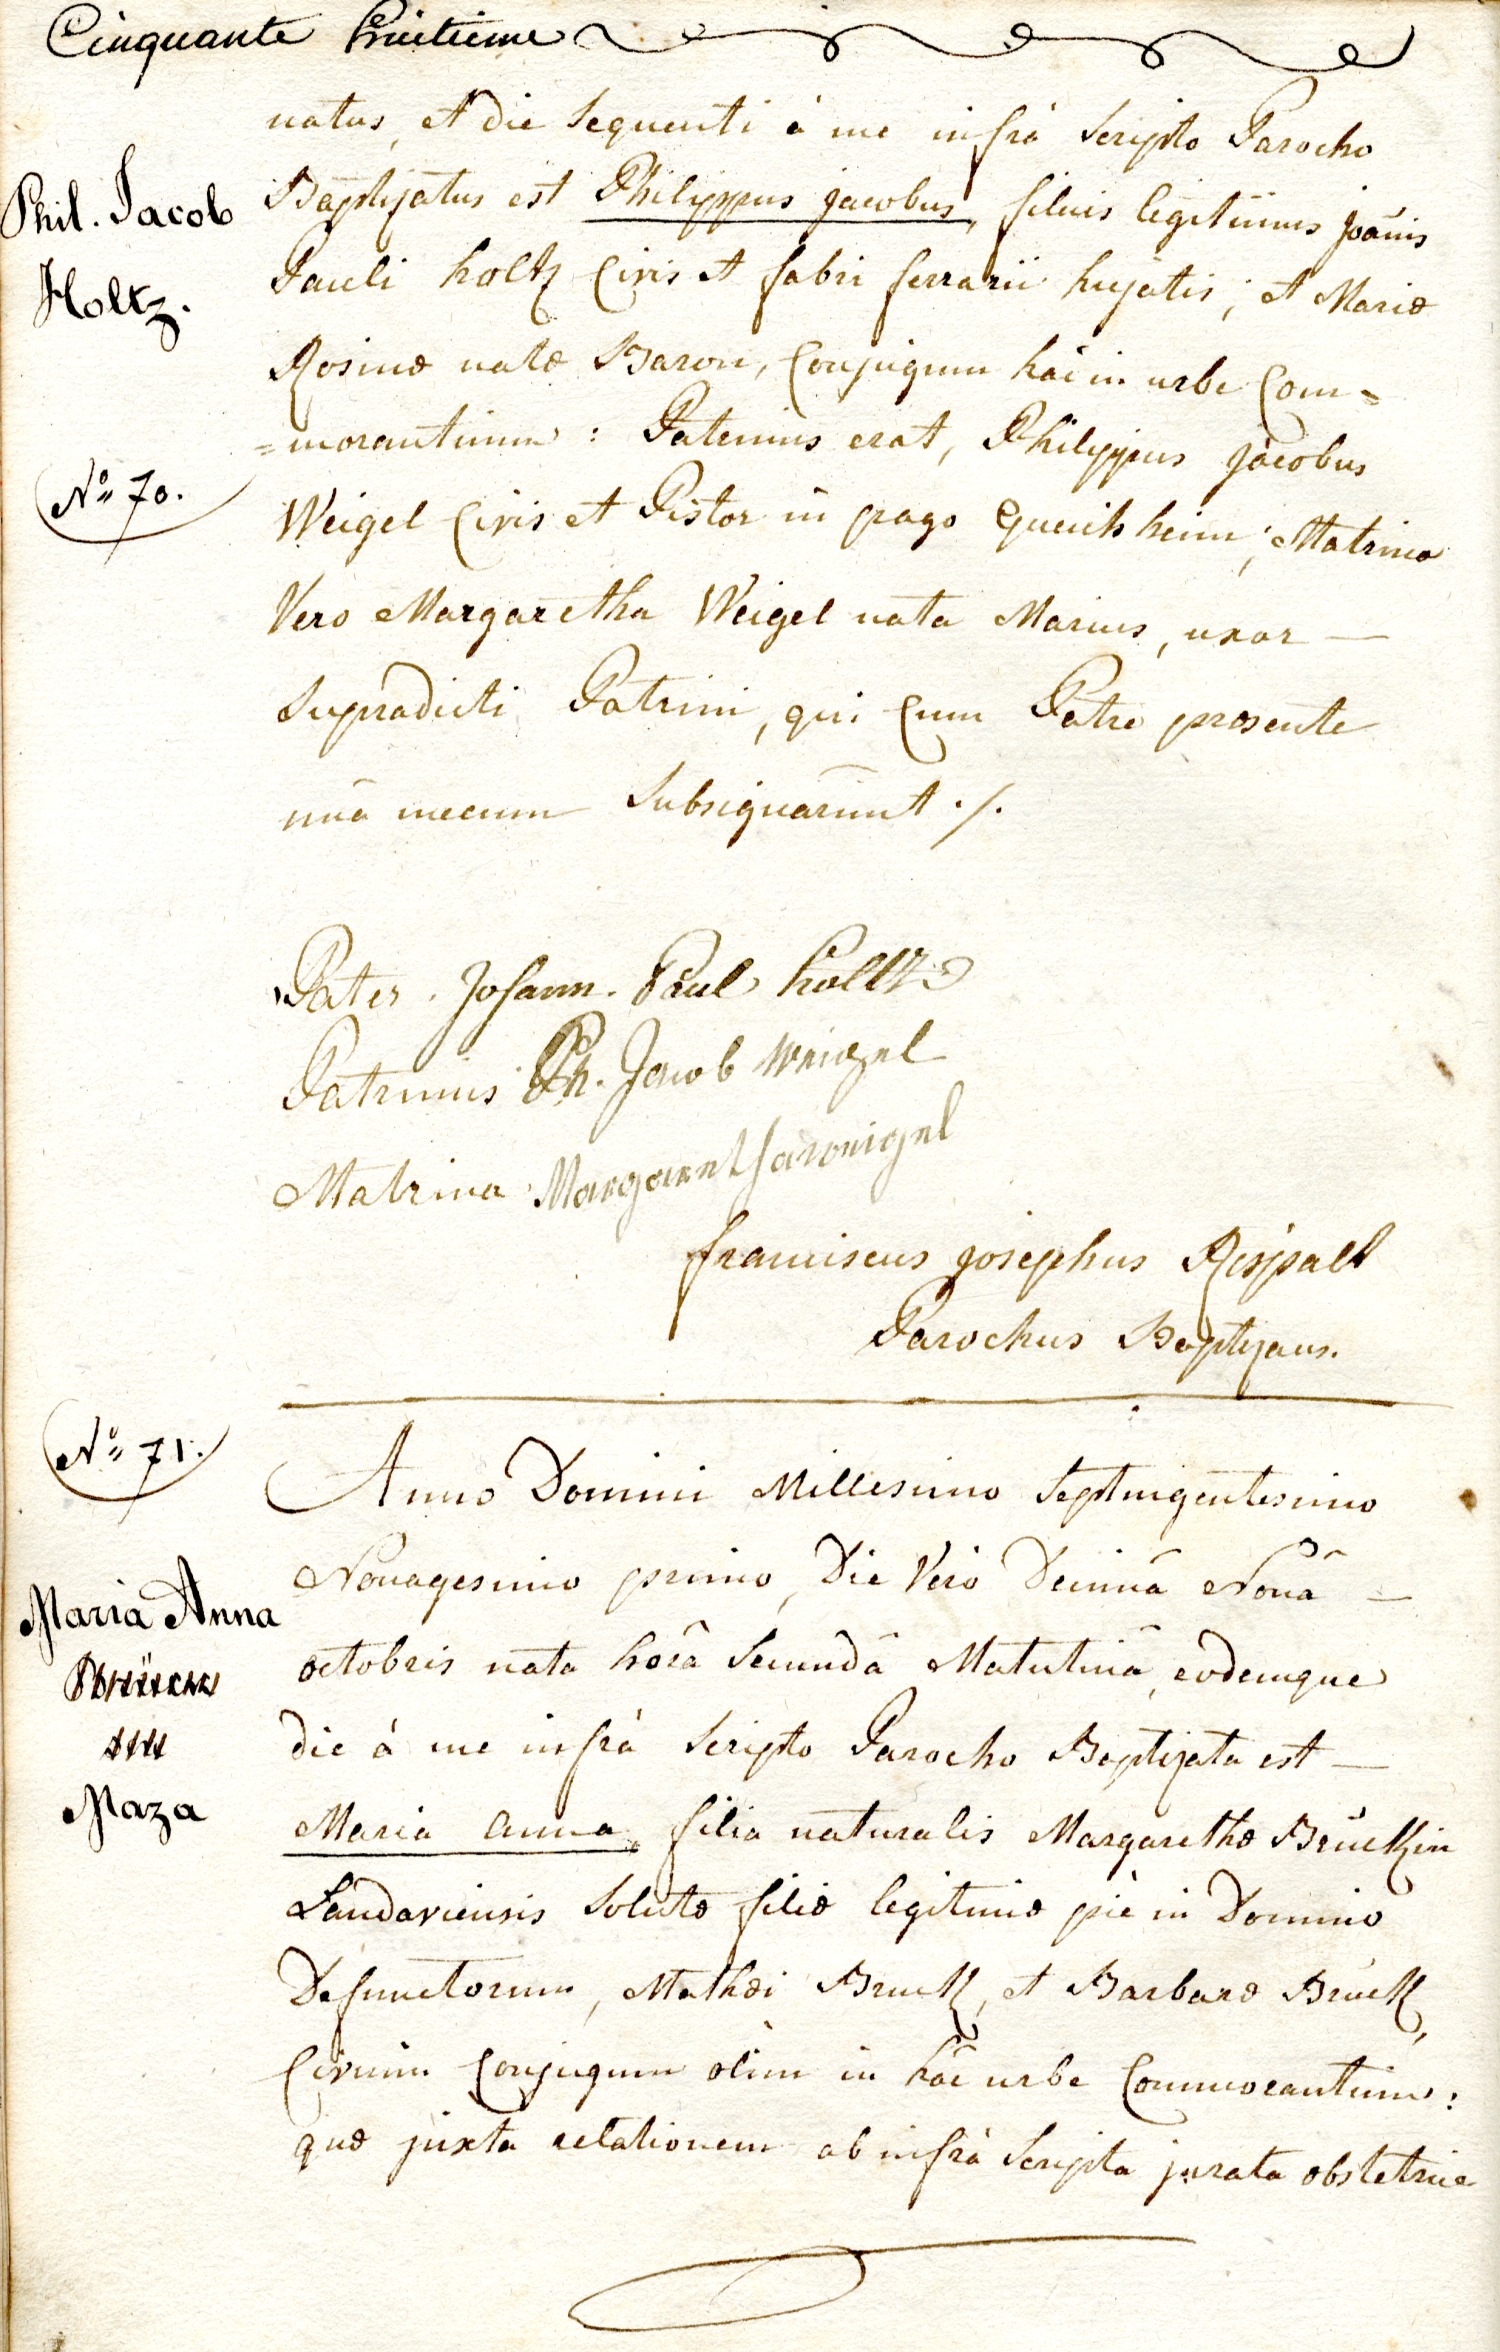 Cinquante huitieme
natus, et die sequenti à me infrà scripto Parocho
Phil. Jacob
Baptizatus est Philippus jacobus, filius legitimus joãnis
Holtz.
Pauli holtz Civis et fabri ferrarii hujatis; et Mariæ
Rosinæ natæ Baron, Conjugum hâc in urbe Com=
=morantium: Patrinus erat, Philippus jacobus
Nº 70.
Weigel Civis et Pistor in pago Queichheim; Matrina
Vero Margaretha Weigel nata Marius, uxor —
supradicti Patrini, qui cum Patre præsente
unà mecum subsignarunt ./.
Pater. Johann. Paul holtz
Patrinus Ph. Jacob Weigel
Matrina Margaretha weigel
franciscus josephus
Parochus Baptizans.
Nº 71.
Anno Domini Millesimo septuigentesimo
Nonagesimo primo, Die Vero Decimâ Nonâ —
Maria Anna
octobris nata horâ secundâ Matutinâ, eodemque
die à me infrà scripto Parocho Baptizata est —
Maza
Maria anna, filia naturalis Margarethæ Brückin
Landaviensis solutæ filiæ legitimæ piè in Domino
Defunctorum, Mathæi Bruck, et Barbaræ Bruck,
Civium Conjugum olim in hâc urbe Commorantium:
quæ juxta relationem ab infrà scripta jurata obstetrice